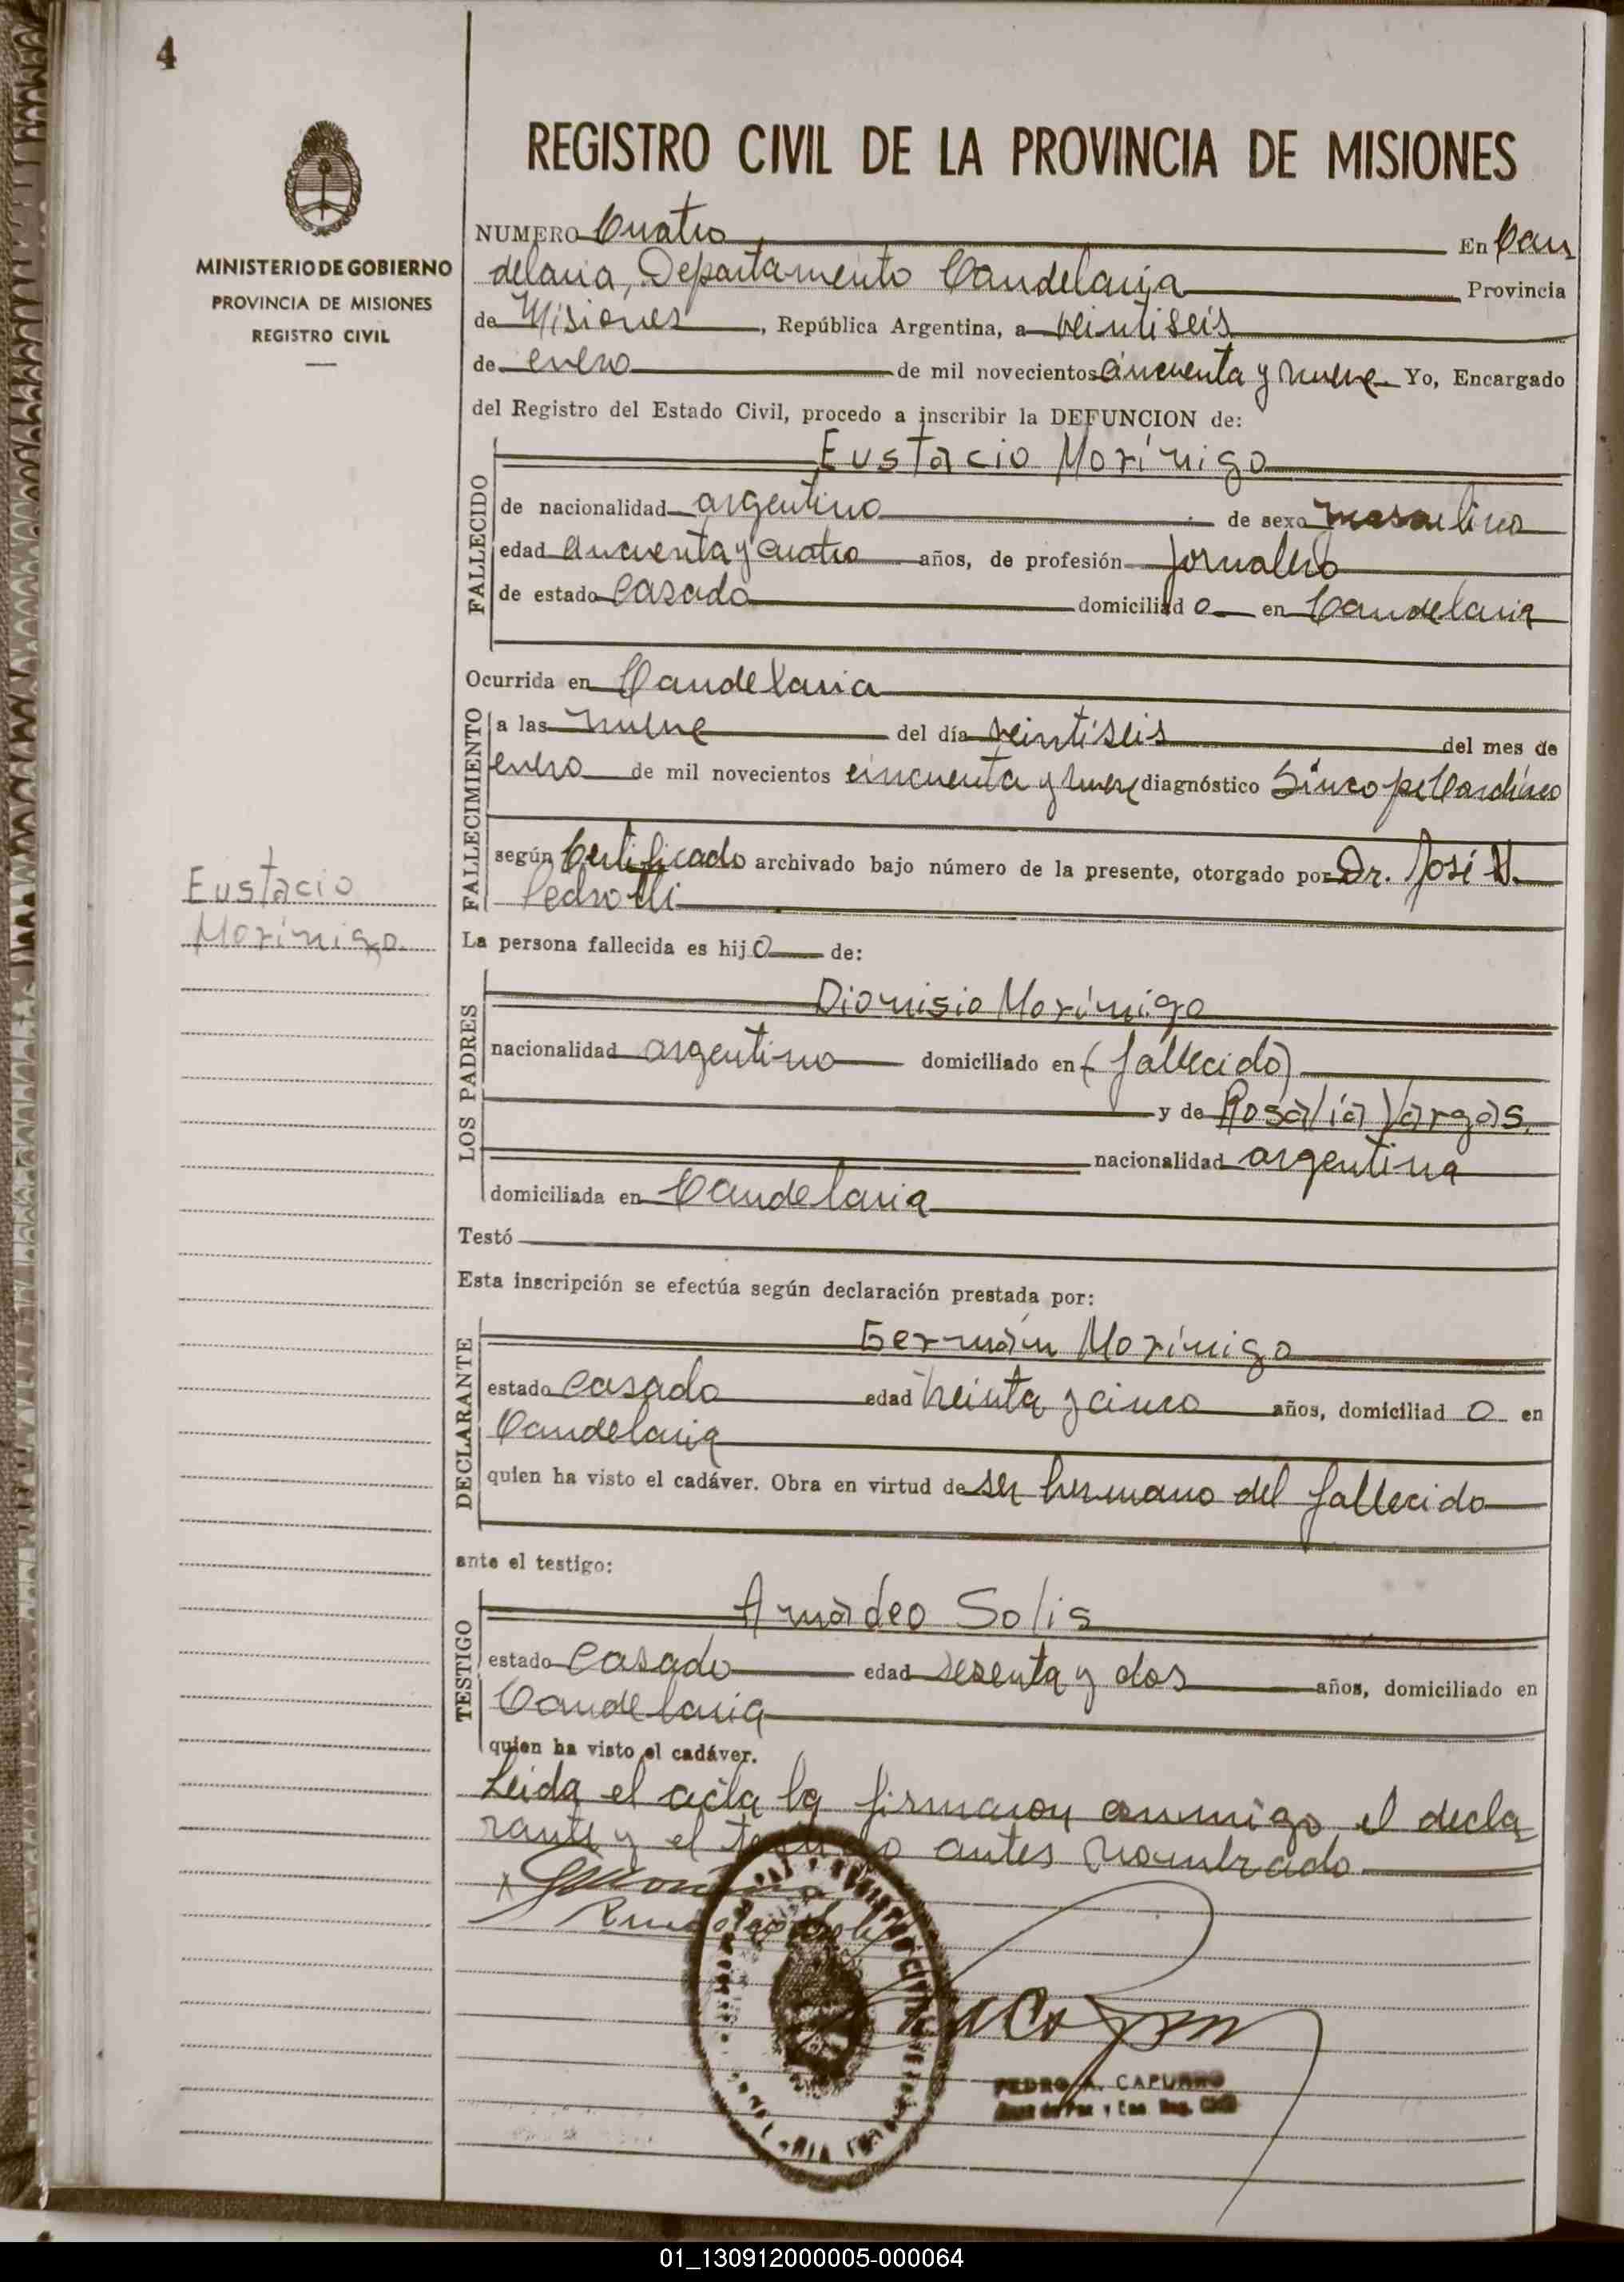 4
MINISTERIO DE GOBIERNO
PROVINCIA DE MISIONES
REGISTRO CIVIL
REGISTRO CIVIL DE LA PROVINCIA DE MISIONES
NUMERO Cuatro En Can
delaria, Departamento Candelaria Provincia
de Misiones, República Argentina, a veintiseis
de enero de mil novecientos cincuenta y nueve Yo, Encargado
del Registro del Estado Civil, procedo a inscribir la DEFUNCION de:
FALLECIDO
Eustacio Morínigo
de nacionalidad argentino de sexo masculino
edad cincuenta y cuatro años, de profesión jornalero
de estado casado domiciliad o en Candelaria
Ocurrida en Candelaria
FALLECIMIENTO
a las nueve del día veintiseis del mes de
enero de mil novecientos cincuenta y nueve diagnóstico Sincope Cardíaco
según Certificado archivado bajo número de la presente, otorgado por Dr. José
Pedrotti
Eustacio
Morínigo.
La persona fallecida es hijo de:
LOS PADRES
Dionisio Morínigo
nacionalidad argentino domiciliado en (fallecido)
y de Rosalía Vargas.
nacionalidad argentina
domiciliada en Candelaria
Testó
Esta inscripción se efectúa según declaración prestada por:
DECLARANTE
Germán Morínigo
estado casado edad treinta y cinco años, domiciliad o en
Candelaria
quien ha visto el cadáver. Obra en virtud de ser hermano del fallecido
ante el testigo:
TESTIGO
Amadeo Solis
estado casado edad sesenta y dos años, domiciliado en
Candelaria
quien ha visto el cadáver.
Leida el acta la firmaron conmigo el decla
rante y el testigo antes nombrado
PEDRO A. CAPURRO
Juez de Paz y Enc. Reg. Civil
01_130912000005-000064